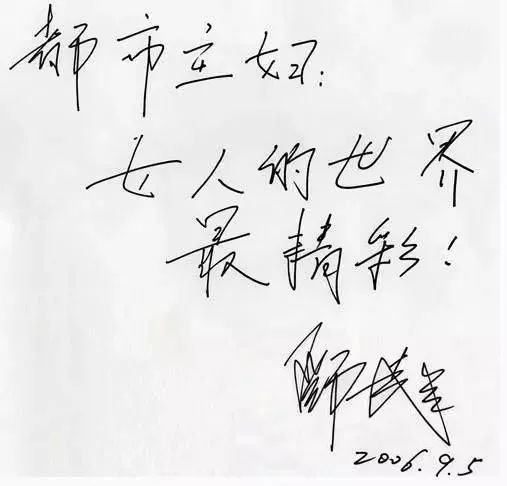 都市主妇:
女人的世界
最精彩!
2006.9.5